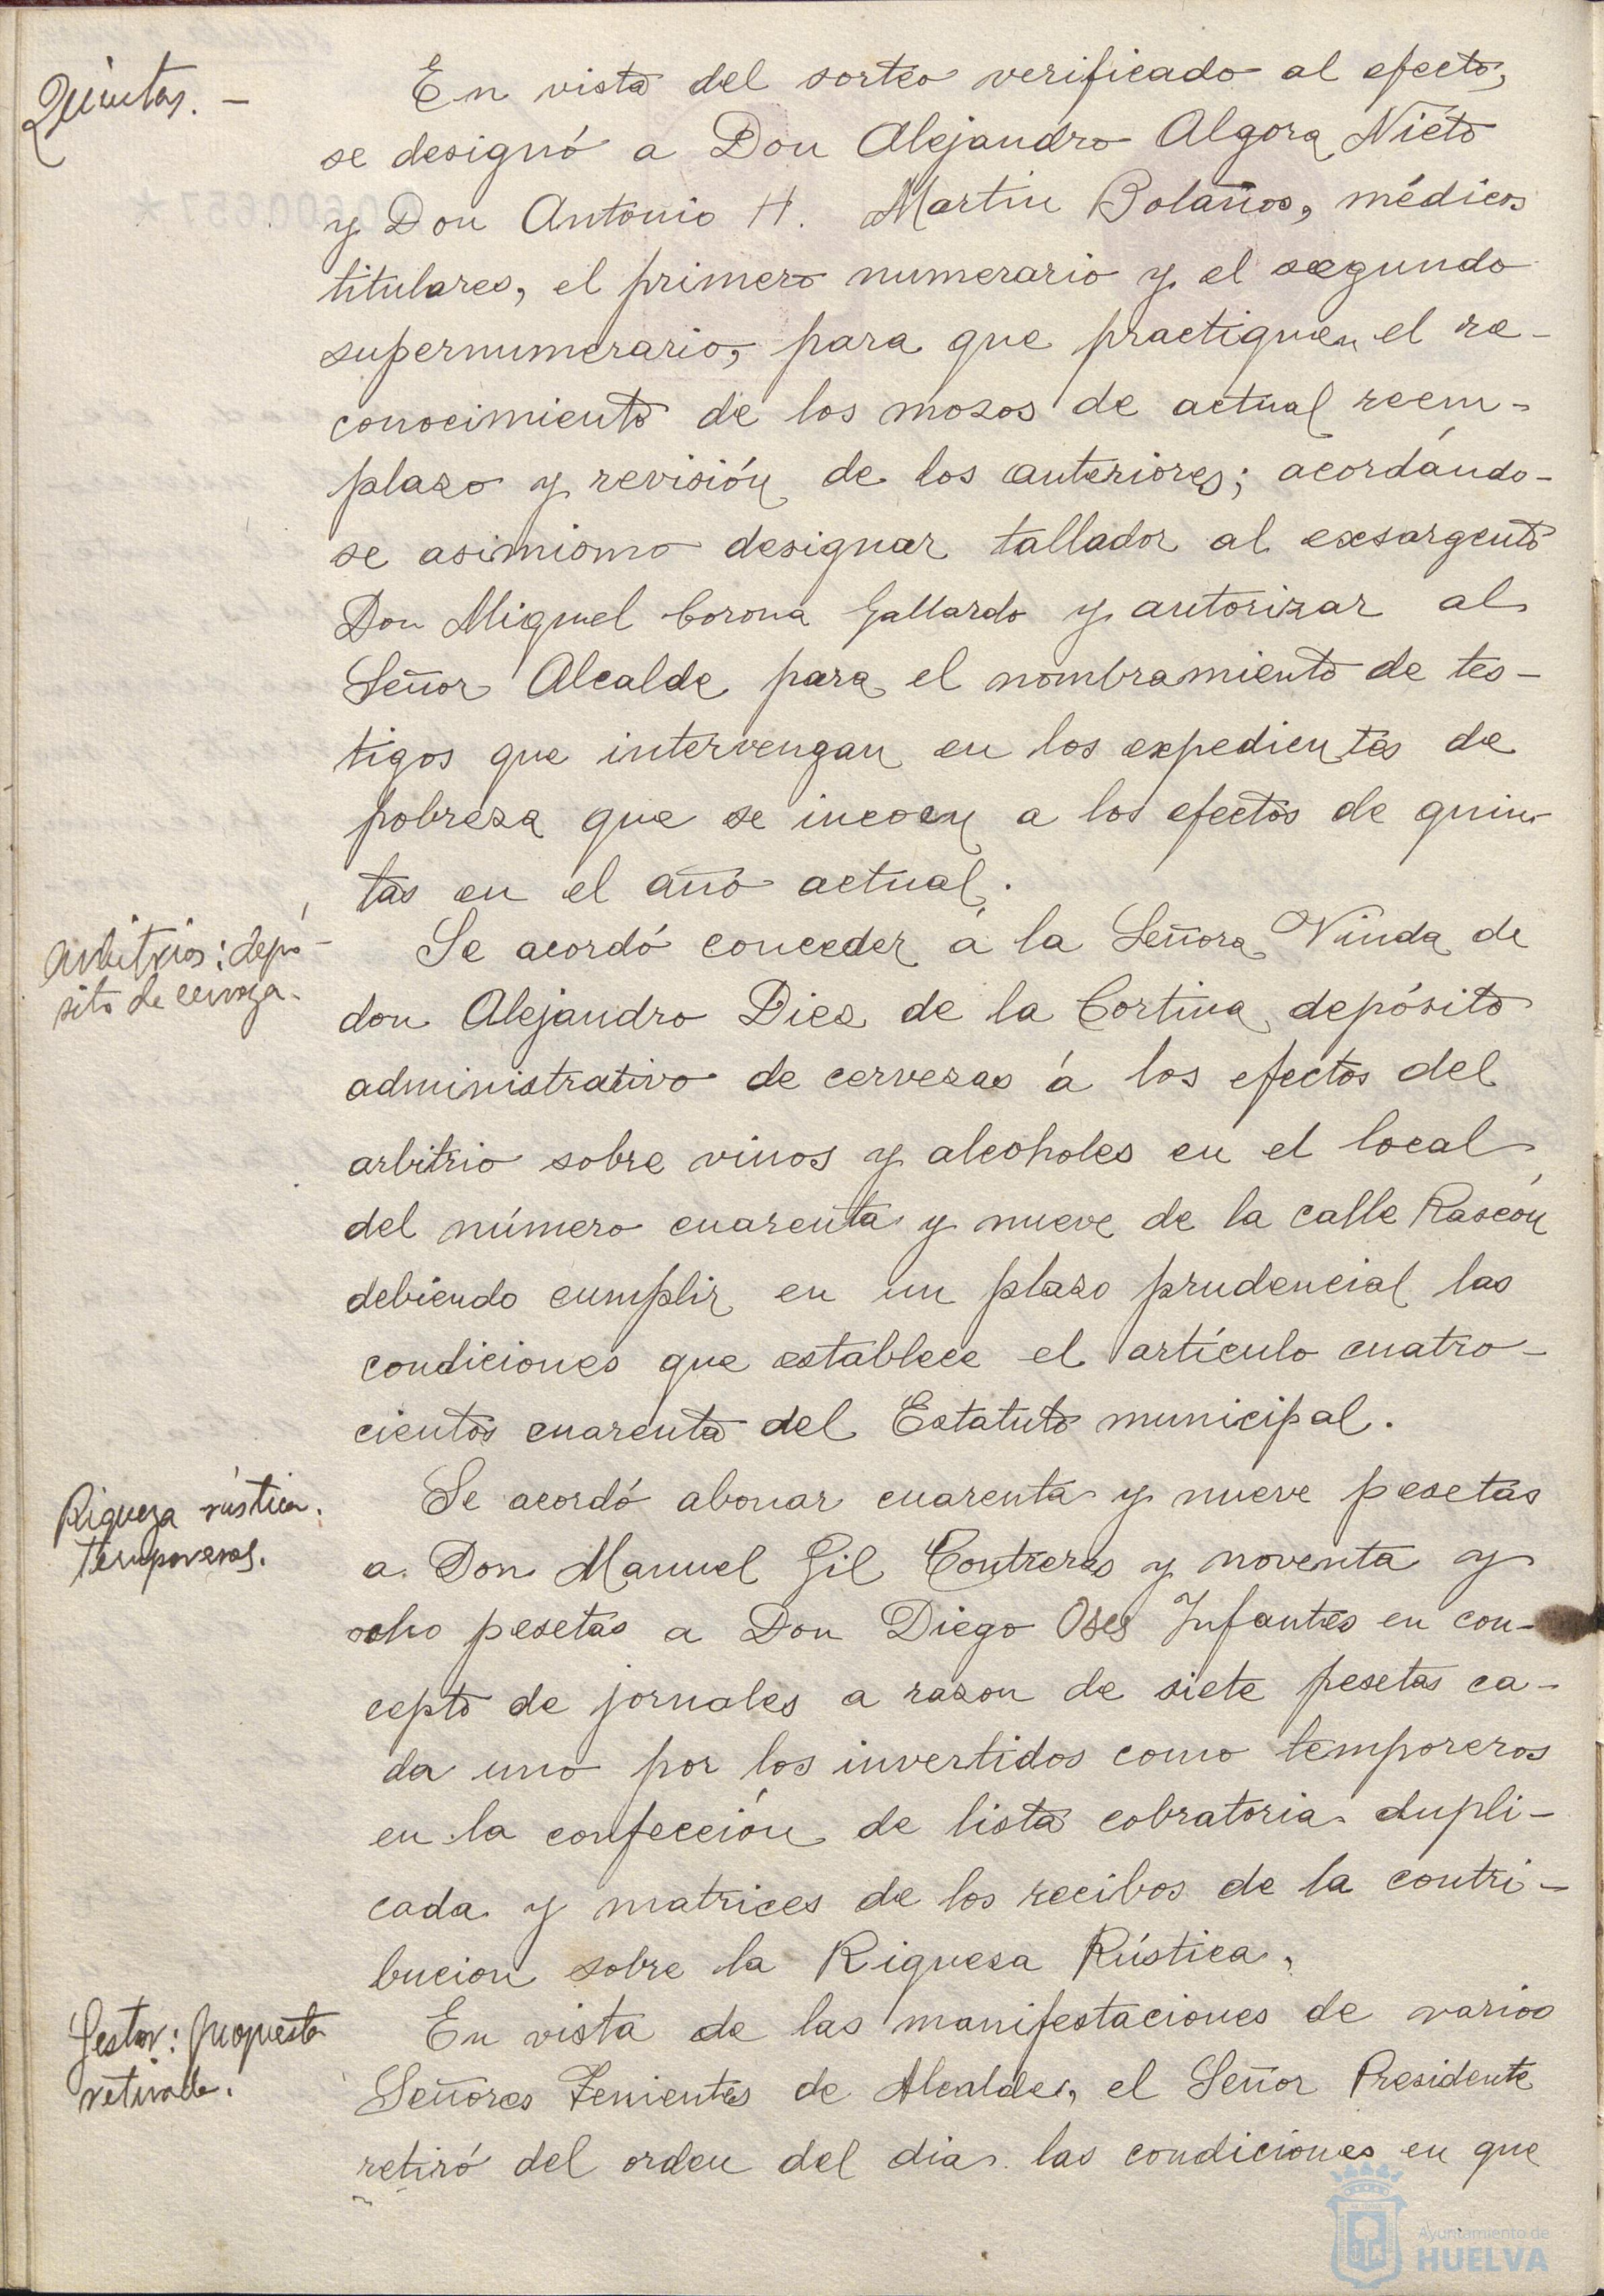 Quintas. –
En vista del sorteo verificado al efecto,
se designó a Don Alejandro Algora Nieto
y Don Antonio H. Martin Bolaños, médicos
titulares, el primero numerario y el segundo
supernumerario, para que practiquen el re-
conocimiento de los mozos de actual reem-
plazo y revisión de los anteriores; acordándo-
se asimismo designar tallador al exsargento
Don Miguel Corona Gallardo y autorizar al
Señor Alcalde para el nombramiento de tes-
tigos que intervengan en los expedientes de
pobreza que se incoen a los efectos de quin-
tas en el año actual.
Arbitrios: depó-
sito de cerveza.
Se acordó conceder á la Señora Viuda de
don Alejandro Diez de la Cortina depósito
administrativo de cervezas á los efectos del
arbitrio sobre vinos y alcoholes en el local
del número cuarenta y nueve de la calle Rascón
debiendo cumplir en un plazo prudencial las
condiciones que establece el artículo cuatro-
cientos cuarenta del Estatuto municipal.
Riqueza rústica.
temporeros.
Se acordó abonar cuarenta y nueve pesetas
a Don Manuel Gil Contreras y noventa y
ocho pesetas a Don Diego Oses Infantes en con-
cepto de jornales a razon de siete pesetas ca-
da uno por los invertidos como temporeros
en la confección de lista cobratoria dupli-
cada y matrices de los recibos de la contri-
bucion sobre la Riqueza Rústica.
Gestor: propuesta
retirada.
En vista de las manifestaciones de varios
Señores Tenientes de Alcaldes, el Señor Presidente
retiró del orden del dia las condiciones en que
Ayuntamiento de
HUELVA